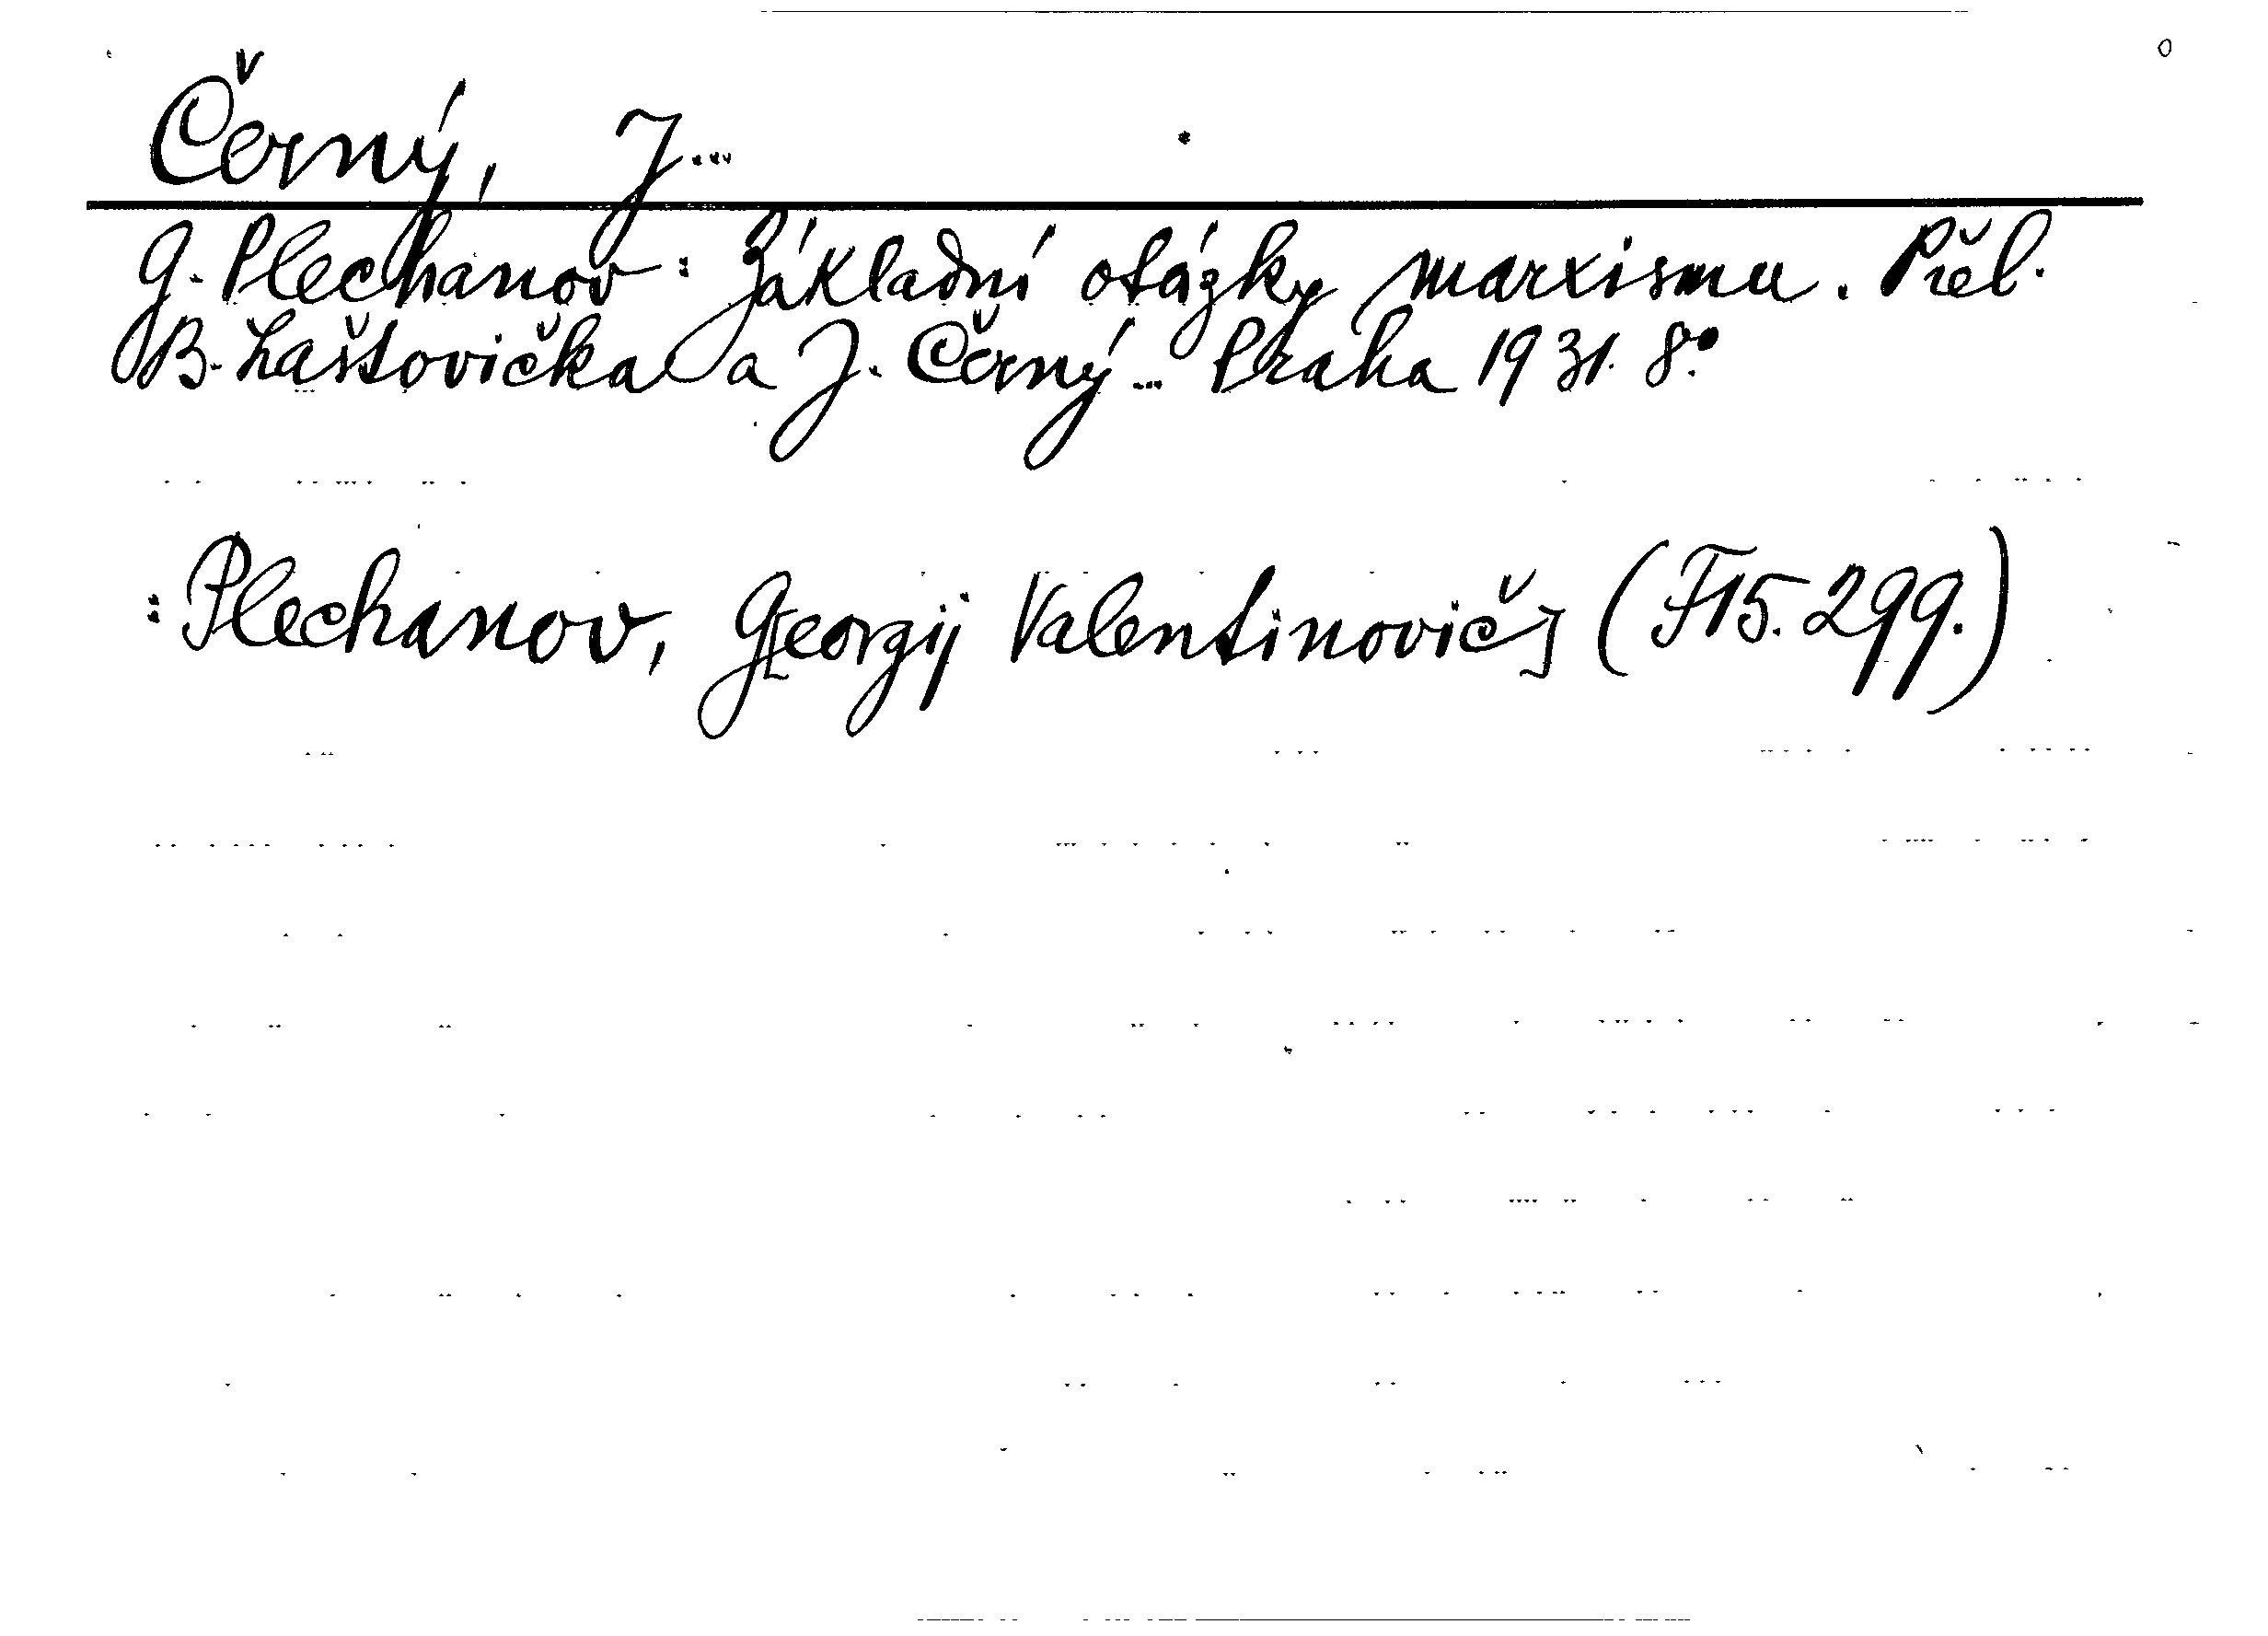 Černý, J...
G. Plechanov: Základní otázky marxismu. Přel.
B. Laštovička a J. Černý... Praha 1931. 8°.
: Plechanov, G[eorgij Valentinovič] (F15.299.)